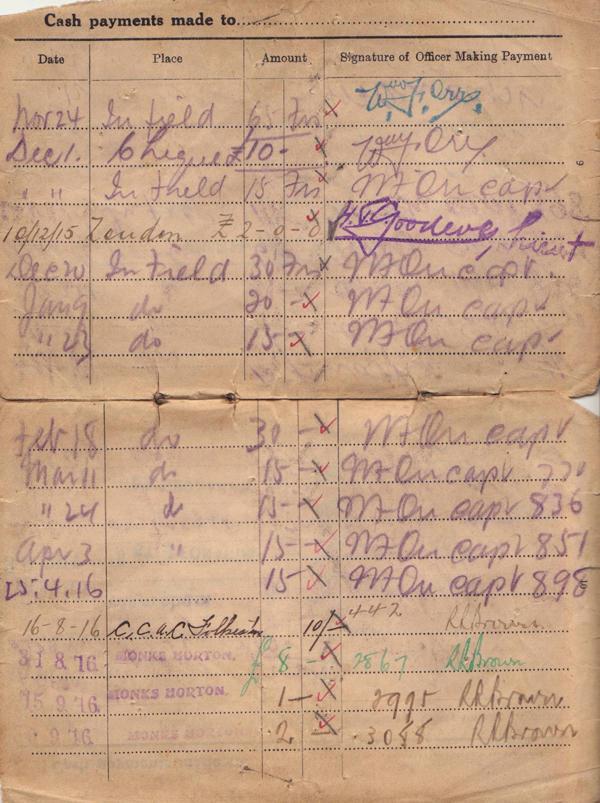 Cash payments made to
Date Place Amount Signature of Officer Making Payment
Nov 24 In field 65 Frs
Dec 1. Cheque £10-
" " In field 15 Frs capt
10/12/15 London £2-0-0
Dec 20 In Field 30 Frs capt.
Jan 9 do 20 - capt
" 23 do 15 - capt
Feb 18 do 30 - capt
Mar 11 do 15 - capt
" 24 do 15 - capt 836
Apr 3 " 15 - capt 851
25.4.16 15 capt 898
16-8-16 C.C.A.C. 10/- 442 Brown
31 8 16 MONKS HORTON. £ 8 - 2867 Brown
15 9 16 MONKS HORTON. 1 - 2995 Brown
9 16 MONKS HORTON 2 3088 Brown